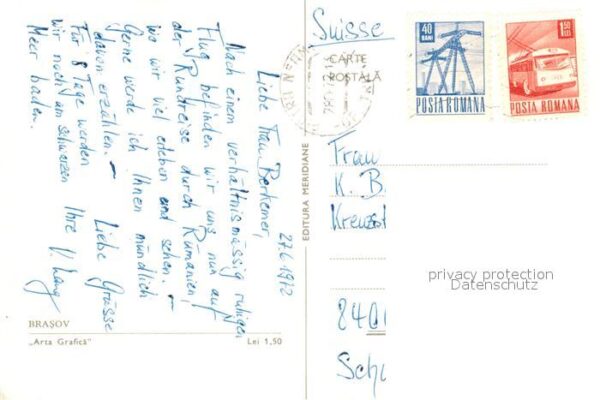 27.6.1972
Liebe Frau Berkemer,
Nach einem verhältnismässig ruhigen
Flug befinden wir uns nun auf
der Rundreise durch Rumänien,
wo wir viel erleben und sehen. –
Gerne werde ich Ihnen mündlich
davon erzählen. – Liebe Grüsse
Für 8 Tage werden
wir noch am schwarzen Ihre V. Lang
Meer baden.
BRAŞOV
„Arta Grafică"
Lei 1,50
EDITURA MERIDIANE
Suisse
CARTE
POŞTALĂ
40
BANI
POSTA ROMANA
1,50
LEI
POSTA ROMANA
Frau
K. B
Kreuzst
privacy protection
Datenschutz
840
Sch